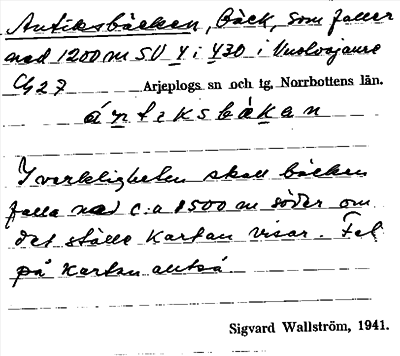 Antiksbäcken, bäck, som faller
ned 1200 m SV y i 430 i Vuolvojaure
Cg 27 Arjeplogs sn och tg, Norrbottens län.
ántiksbäkan
I verkligheten skall bäcken
falla ned c:a 1500 m söder om
det ställe kartan visar. Fel
på kartan altså.
Sigvard Wallström, 1941.